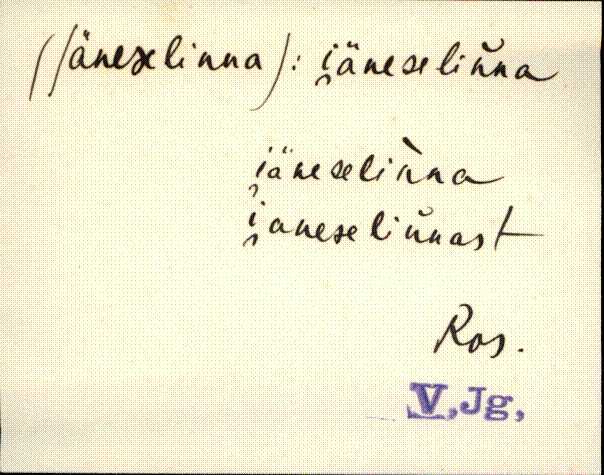 (Jäneselinna): i̯äneselin̆na
i̯äneselìnna
i̯aneselin̆nast
Ros.
V, Jg,